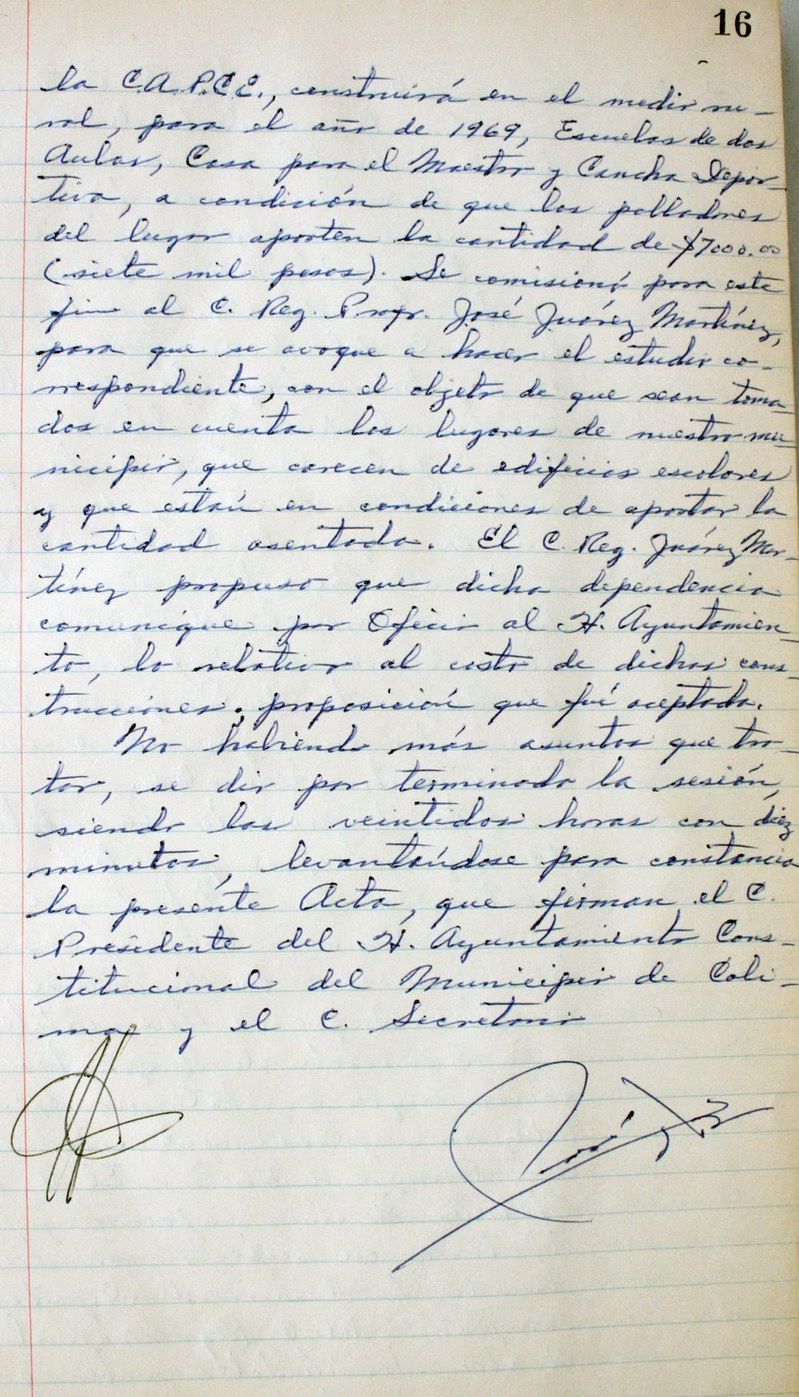 16
la C.A.P.C.E., construirá en el medio ru-
ral, para el año de 1969, Escuelas de dos
Aulas, Casa para el Maestro y Cancha Depor-
tiva, a condición de que los pobladores
del lugar aporten la cantidad de $7000.00
(siete mil pesos). Se comisionó para este
fin al C. Reg. Profr. José Juárez Martínez,
para que se avoque a hacer el estudio co-
rrespondiente, con el objeto de que sean toma-
dos en cuenta los lugares de nuestro mu-
nicipio, que carecen de edificios escolares
y que están en condiciones de aportar la
cantidad asentada. El C. Reg. Juárez Mar-
tínez propuso que dicha dependencia
comunique por Oficio al H. Ayuntamien-
to, lo relativo al costo de dichas cons-
trucciones; proposición que fué aceptada.
No habiendo más asuntos que tra-
tar, se dio por terminada la sesión,
siendo las veintidos horas con diez
minutos, levantándose para constancia
la presente Acta, que firman el C.
Presidente del H. Ayuntamiento Cons-
titucional del Municipio de Coli-
ma y el C. Secretario